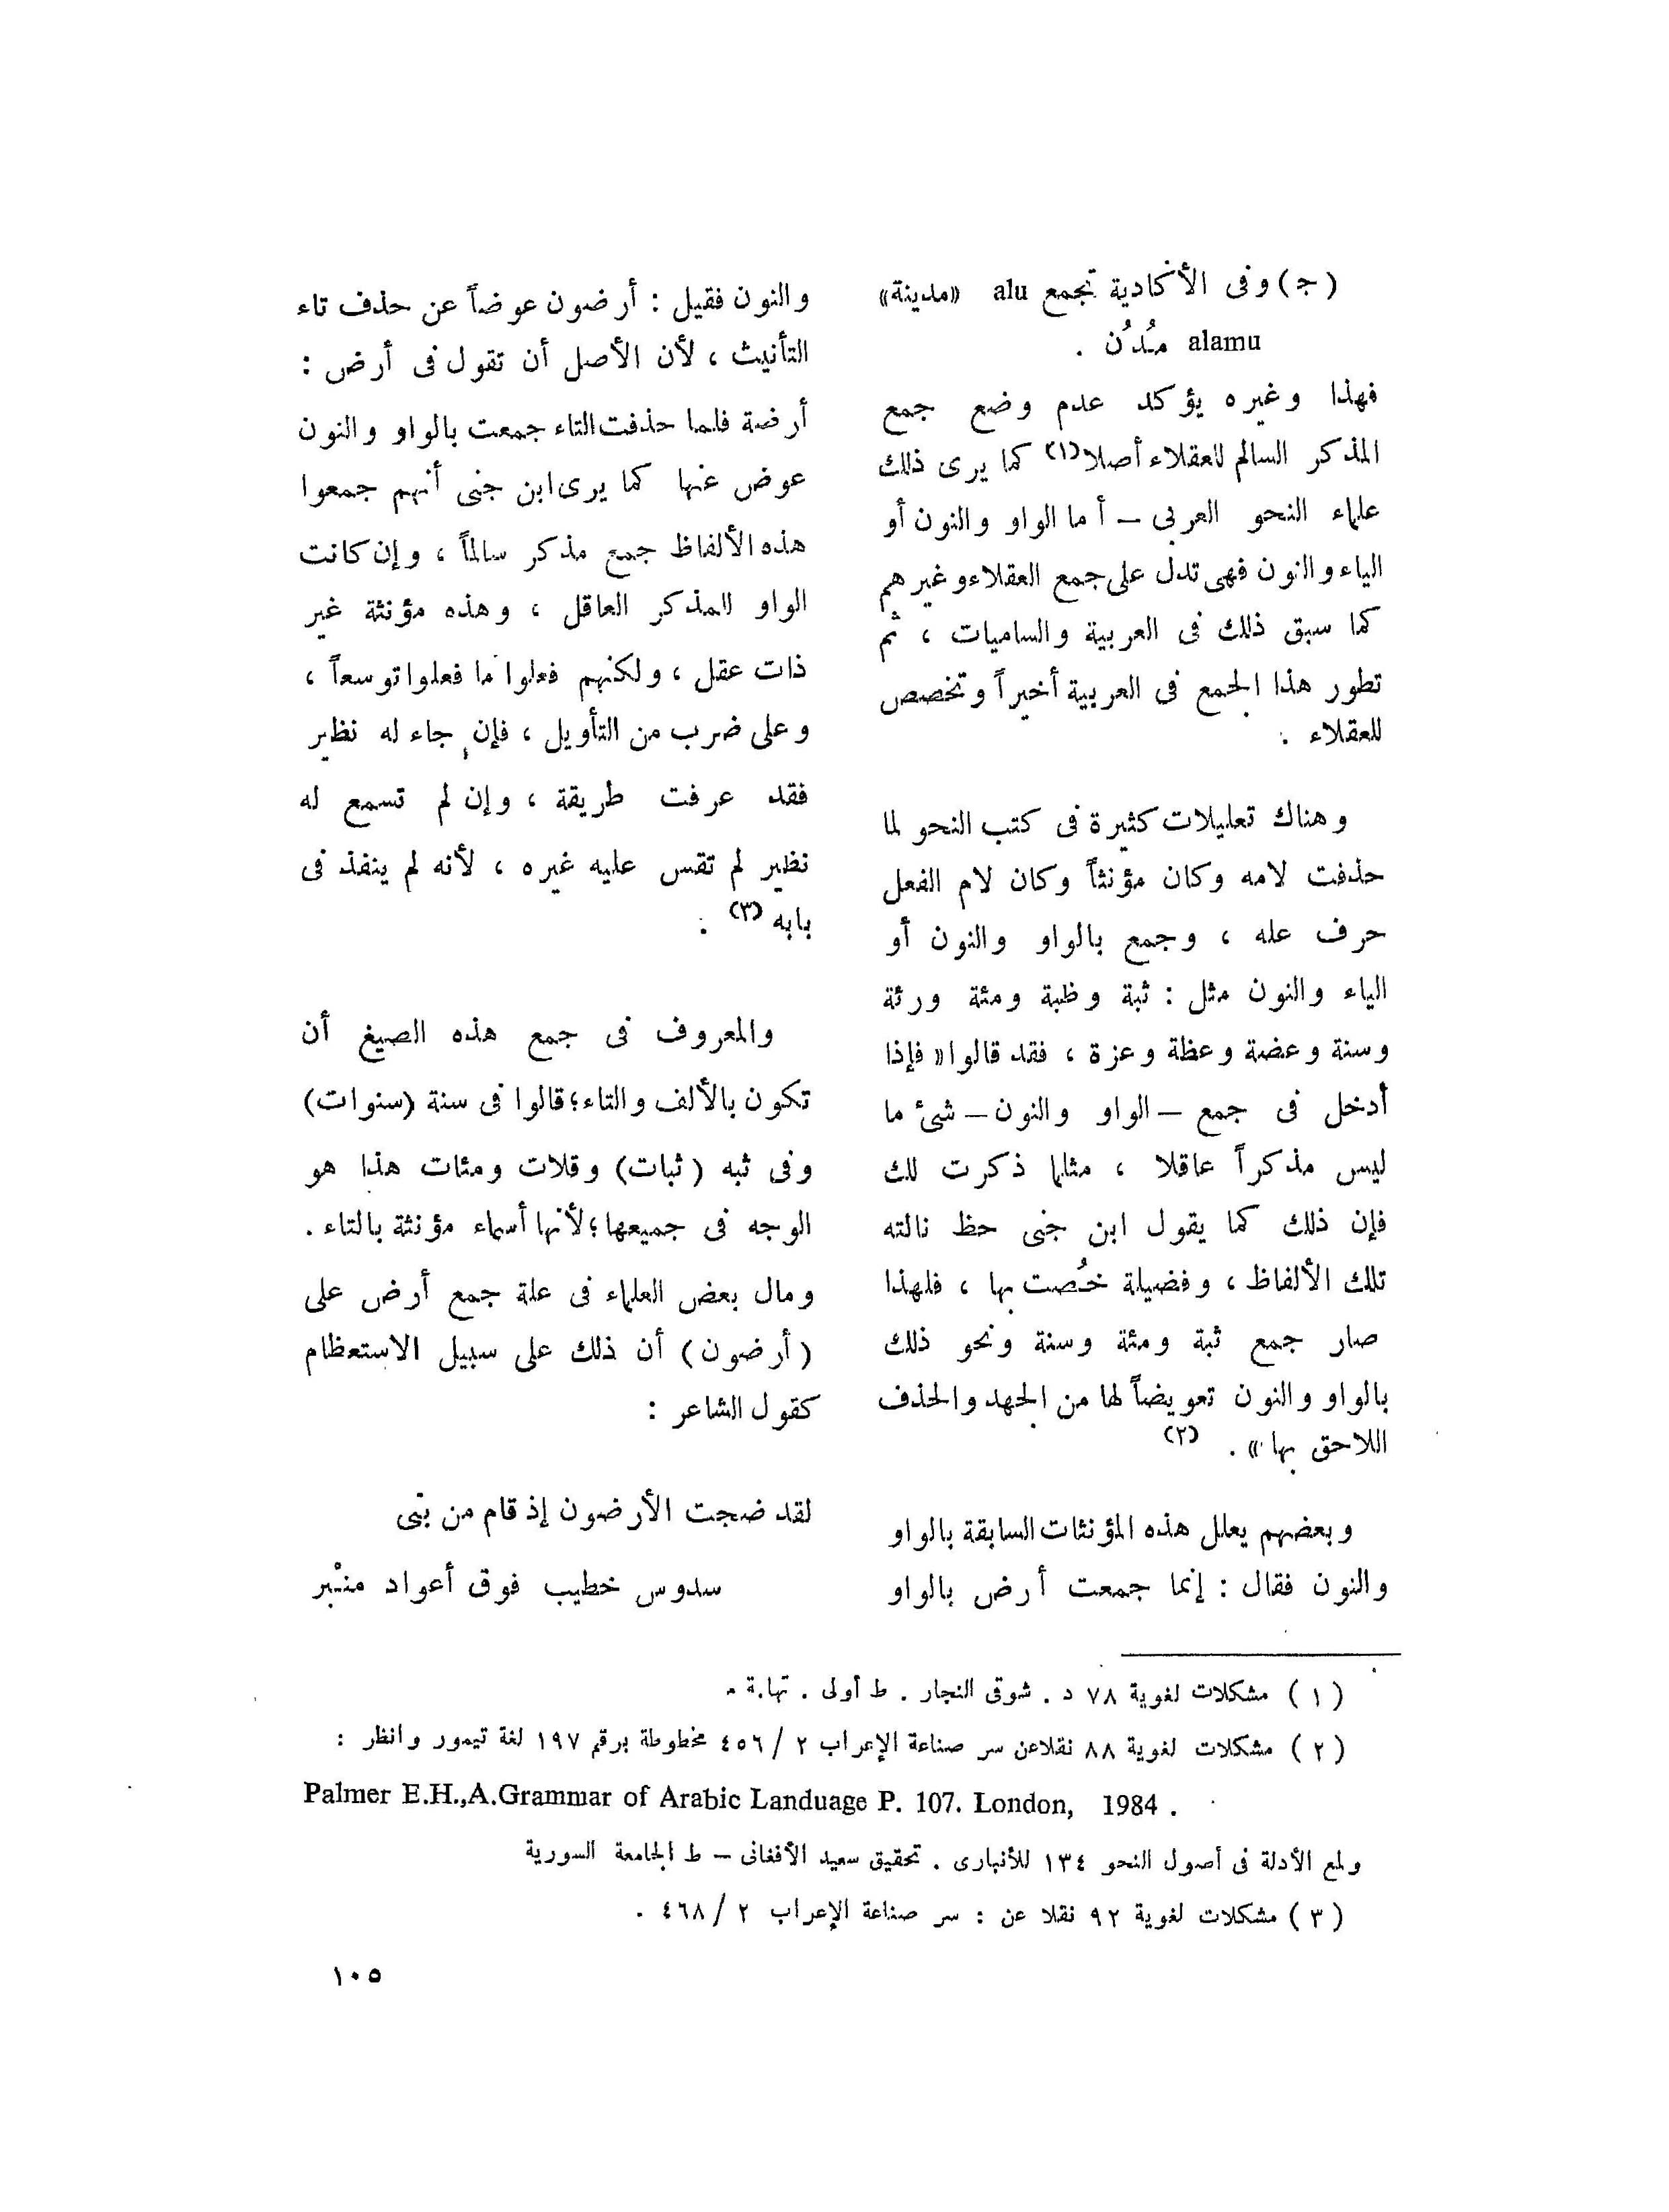 (ج) وفى الأكادية تجمع alu «مدينة»
alamu مُدُن .
فهذا وغيره يؤكد عدم وضع جمع
المذكر السالم للعقلاء أصلا(١) كما يرى ذلك
علماء النحو العربى – أما الواو والنون أو
الياء والنون فهى تدل على جمع العقلاء وغيرهم
كما سبق ذلك فى العربية والساميات ، ثم
تطور هذا الجمع فى العربية أخيراً وتخصص
للعقلاء .
وهناك تعليلات كثيرة فى كتب النحو لما
حذفت لامه وكان مؤنثاً وكان لام الفعل
حرف عله ، وجمع بالواو والنون أو
الياء والنون مثل : ثبة وظبة ومئة ورئة
وسنة وعضة وعظة وعزة ، فقد قالوا « فإذا
أدخل فى جمع – الواو والنون – شئ ما
ليس مذكراً عاقلا ، مثلما ذكرت لك
فإن ذلك كما يقول ابن جنى حظ نالته
تلك الألفاظ ، وفضيلة خُصت بها ، فلهذا
صار جمع ثبة ومئة وسنة ونحو ذلك
بالواو والنون تعويضاً لها من الجهد والحذف
اللاحق بها » . (٢)
وبعضهم يعلل هذه المؤنثات السابقة بالواو
والنون فقال : إنما جمعت أرض بالواو
والنون فقيل : أرضون عوضاً عن حذف تاء
التأنيث ، لأن الأصل أن تقول فى أرض :
أرضة فلما حذفت التاء جمعت بالواو والنون
عوض عنها كما يرى ابن جنى أنهم جمعوا
هذه الألفاظ جمع مذكر سالماً ، وإن كانت
الواو للمذكر العاقل ، وهذه مؤنثة غير
ذات عقل ، ولكنهم فعلوا ما فعلوا توسعاً ،
وعلى ضرب من التأويل ، فإن جاء له نظير
فقد عرفت طريقة ، وإن لم تسمع له
نظير لم تقس عليه غيره ، لأنه لم ينفذ فى
بابه (٣) .
والمعروف فى جمع هذه الصيغ أن
تكون بالألف والتاء ؛ قالوا فى سنة (سنوات)
وفى ثبه (ثبات) وقلات ومئات هذا هو
الوجه فى جميعها ؛ لأنها أسماء مؤنثة بالتاء .
ومال بعض العلماء فى علة جمع أرض على
(أرضون) أن ذلك على سبيل الاستعظام
كقول الشاعر :
لقد ضجت الأرضون إذ قام من بنى
سدوس خطيب فوق أعواد منْبر
(١) مشكلات لغوية ٧٨ د . شوقى النجار . ط أولى . تهامة .
(٢) مشكلات لغوية ٨٨ نقلا عن سر صناعة الإعراب ٢ / ٤٥٦ مخطوطة برقم ١٩٧ لغة تيمور وانظر :
Palmer E.H.,A.Grammar of Arabic Landuage P. 107. London, 1984 .
ولمع الأدلة فى أصول النحو ١٣٤ للأنبارى . تحقيق سعيد الأفغانى – ط الجامعة السورية
(٣) مشكلات لغوية ٩٢ نقلا عن : سر صناعة الإعراب ٢ / ٤٦٨ .
١٠٥